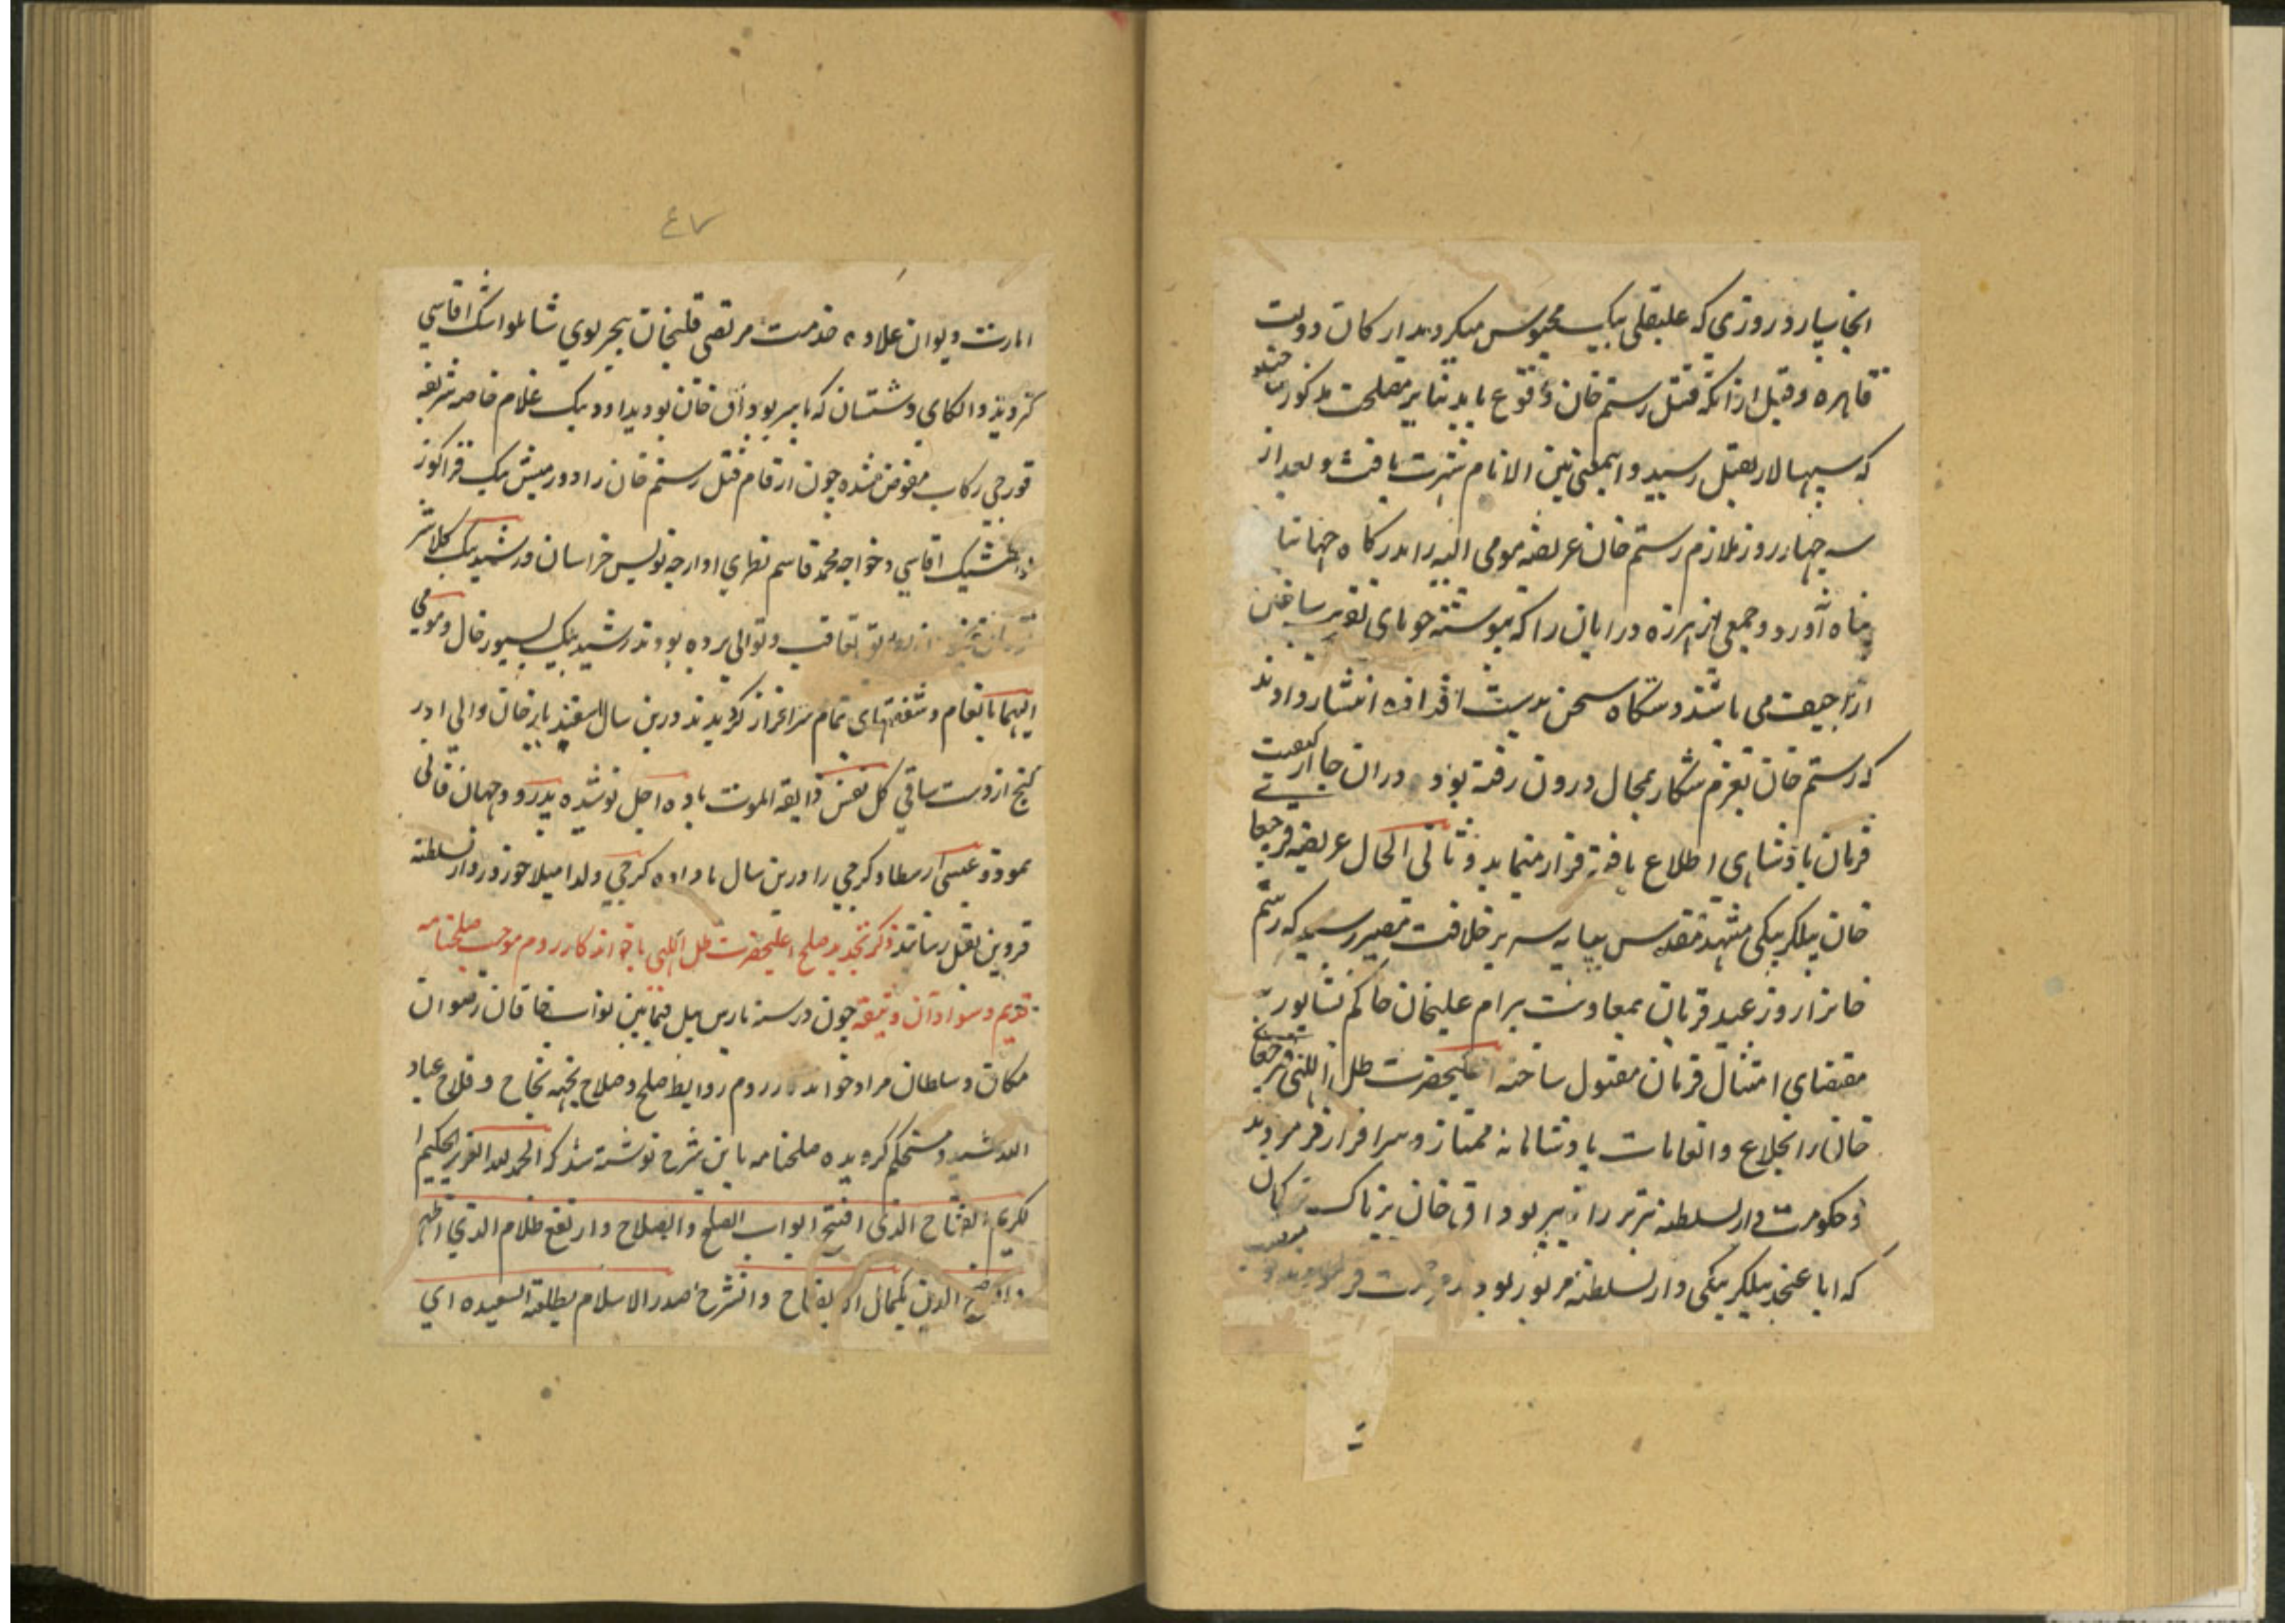 انجا سپارد روزی که علیقلی بیک محبوس میکردید ارکان دولت
قاهره و قبل ازانکه قتل رستم خان وقوع یابد بنابر مصلحت مذکور
که سپهسالار بقتل رسید و اینمعنی بین الانام شهرت یافت و بعد از
سه چهار روز ملازم رستم خان عریضه مومی الیه را بدرکاه جهان
پناه آورد و جمعی از هرزه درایان را که پیوسته جویای
اراجیف می باشند دستکاه سخن بدست افتاده انتشار دادند
که رستم خان بعزم شکار بمحال درون رفته بود دران جا از کیفیت
فرمان پادشاهی اطلاع یافته فرار مینماید و ثانی الحال عریضه قرچغا
خان بیلکربیکی مشهد مقدس بپایه سریر خلافت مصیر رسید که رستم
خانرا روز عید قربان بمعاونت بیرام علیخان حاکم نشابور
مقتضای امتثال فرمان مقتول ساخته اعلیحضرت ظل اللهی قرچغا
خانرا بخلاع و انعامات پادشاهانه ممتاز و سرافراز فرمودند
و حکومت دارالسلطنه تبریز را به پیربوداق خان پرناک ترکمان
که ابا عنجد بیلکربیکی دارالسلطنه مزبور بود
۴۷
امارت دیوان علاوه خدمت مرتضی قلیخان بیجرلوی شاملو اشک اقاسی
کردید و الکای دشتستان که با پیربوداق خان بود بداود بیک غلام خاصه شریفه
قورچی رکاب مفوض شده چون ارقام قتل رستم خان را دورمیش بیک قراکوز
اقاسی و خواجه محمد قاسم نطری اوارجه نویس خراسان و رشید بیک
تعاقب و توالی برده بودند رشید بیک بسیورغال و مومی
الیهما بانعام و شفقتهای تمام سرافراز کردیدند درین سال اسفندیار خان والی ادر
کنج از دست ساقی کل نفس ذایقه الموت باده اجل نوشیده بدرود جهان فانی
نمود و عیسی ارسطاو کرجی را درین سال با داده کرجی ولد امیلاخور در دارالسلطنه
قزوین بقتل رساندند ذکر تجدید صلح اعلیحضرت ظل اللهی با خواندکار روم موجب صلحنامه
قدیم و سواد آن وثیقه چون در سنه بارس ییل فیمابین نواب خاقان رضوان
مکان و سلطان مراد خواندکار روم روابط صلح و صلاح بجهه نجاح و فلاح عباد
الله مشید و مستحکم کردیده صلحنامه باین شرح نوشته شد که الحمد لله العزیز الحکیم
الکریم الفتاح الذی افتتح ابواب الصلح والصلاح وارتفع ظلام الذی اظهر
واوضح الدین بکمال الایضاح وانشرح صدر الاسلام بطلعة السعیده ای